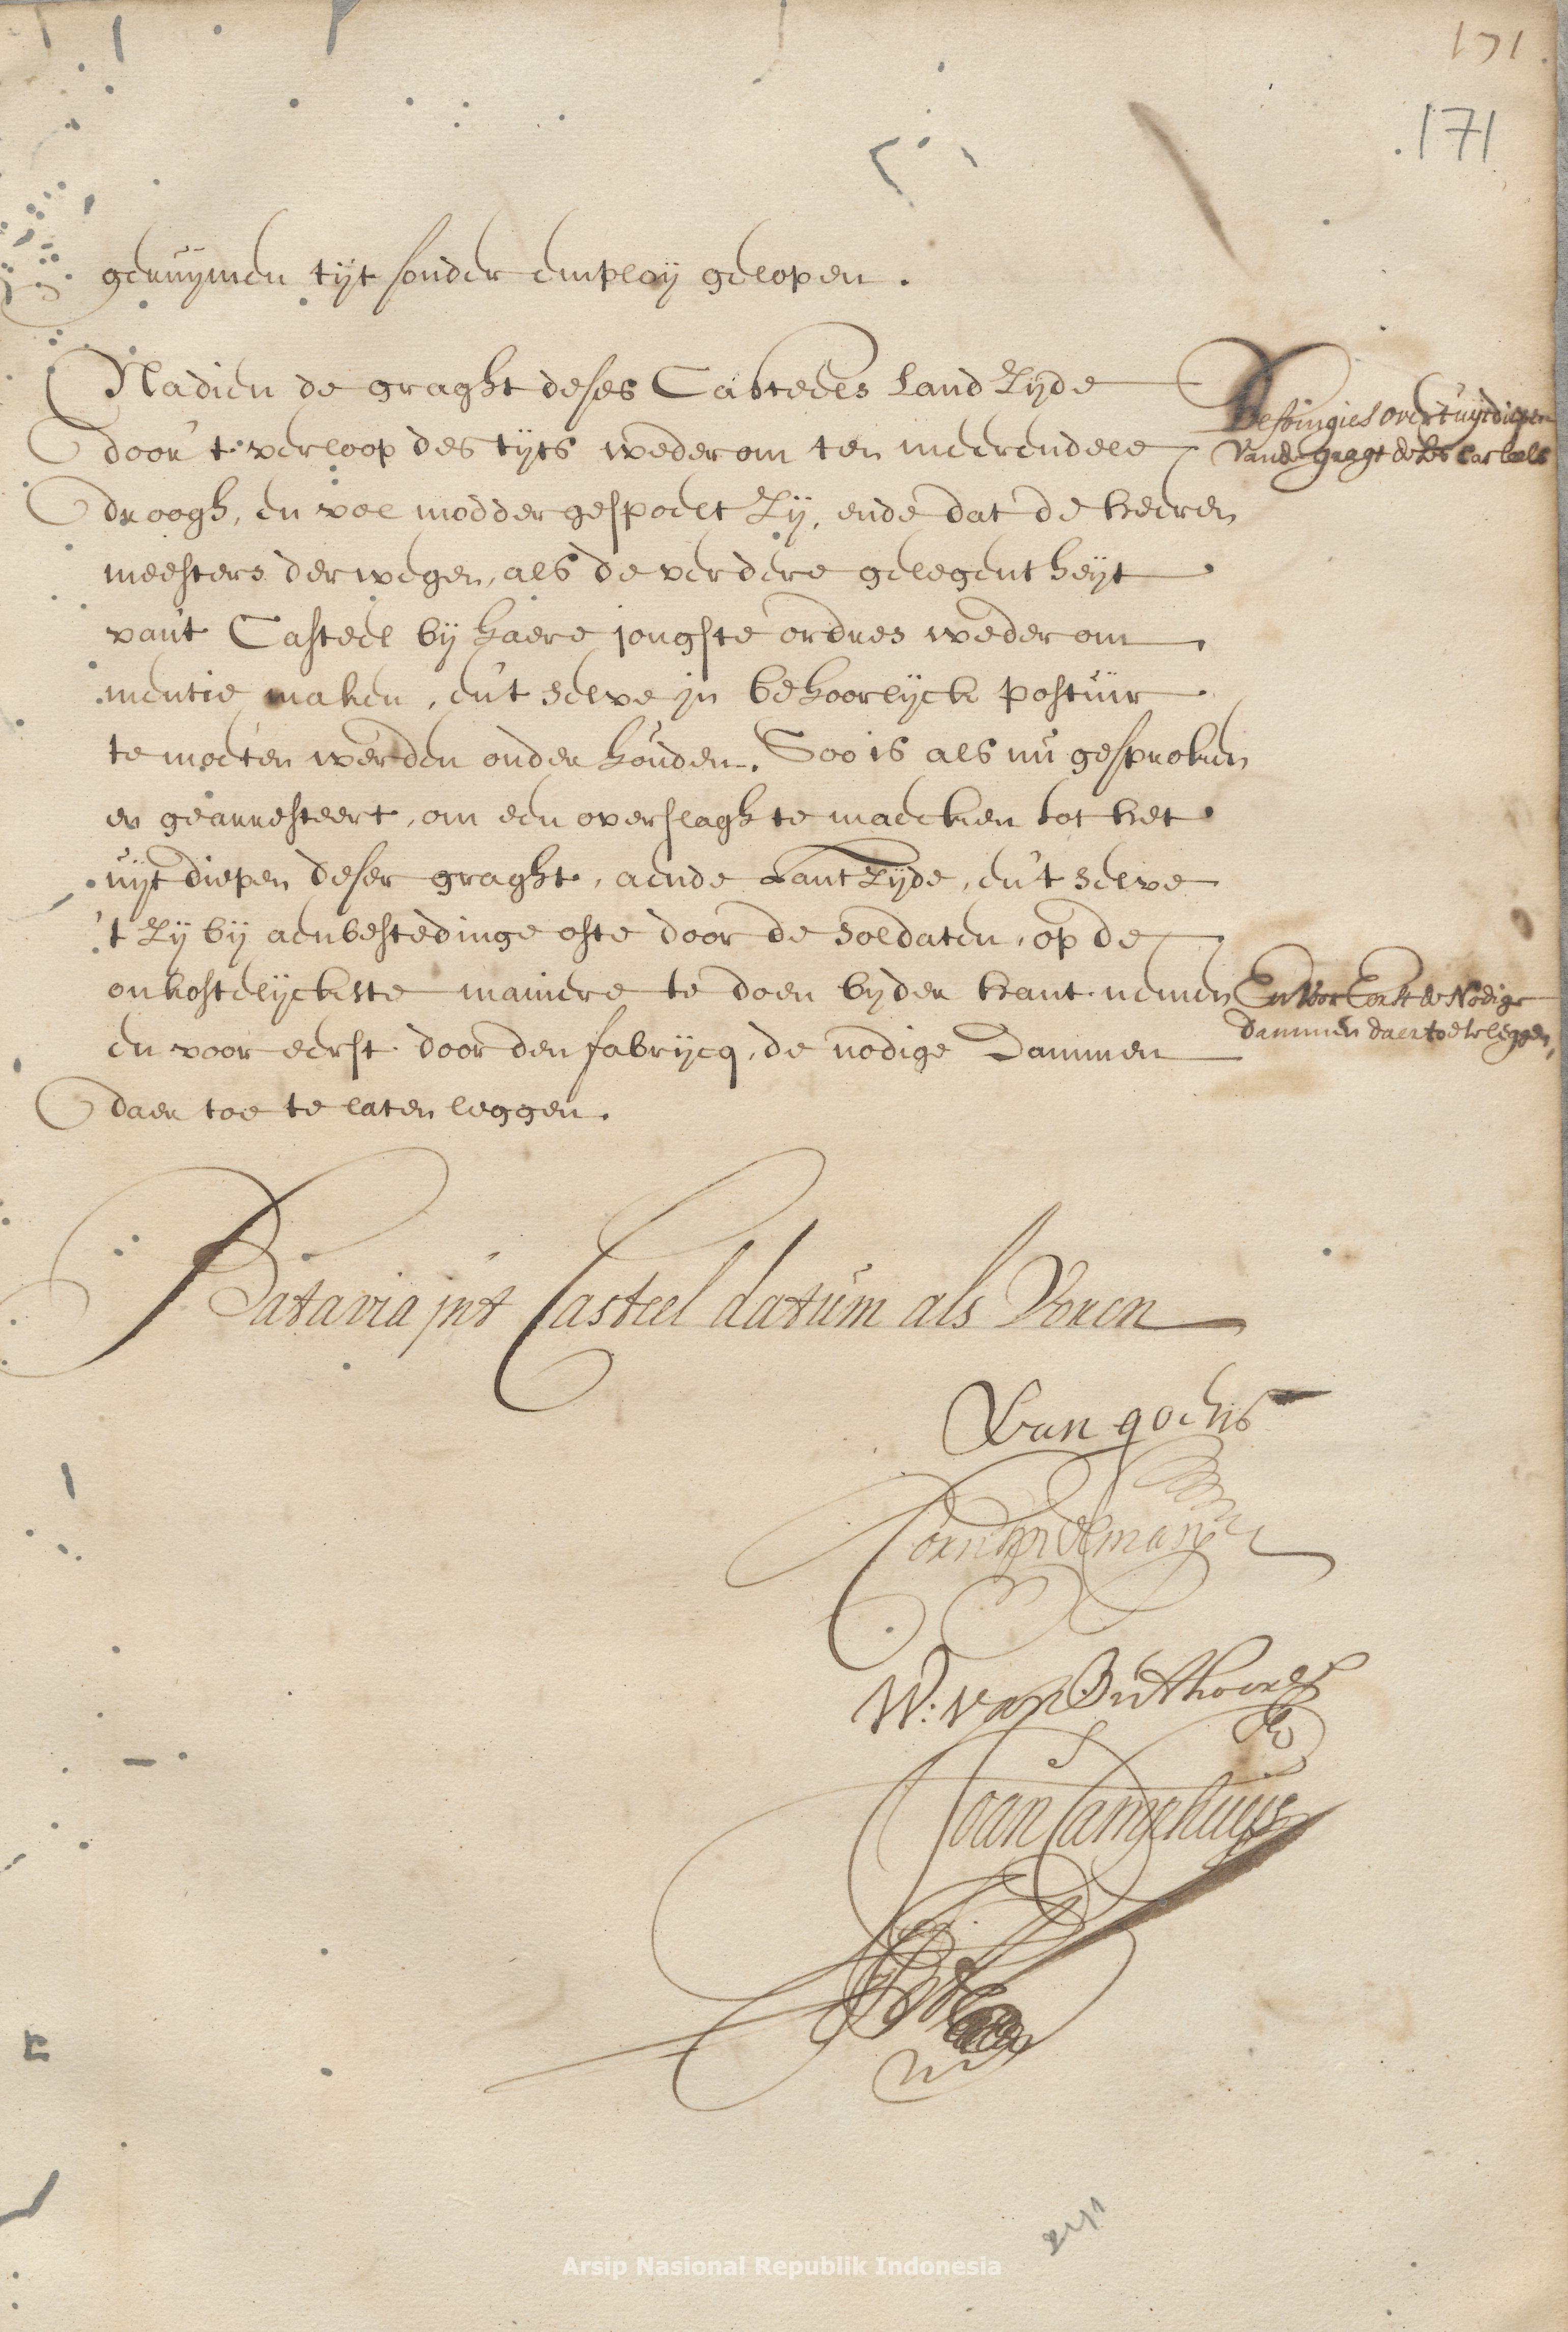 171
171
geruijmen tijt sonder employ gelopen.
Nadien de graght deses Casteels Landzijde
door 't verloop des tijts wederom ten meerendele
droogh, en vol modder gespoelt zij, ende dat de heeren
meesters derwegen, als de verdere gelegentheijt
van't Casteel bij haere jongste ordres wederom
mentie maken, en't selve in behoorlijck postuir
te moeten werden onderhouden. Soo is als nu gesproken
en gearresteert, om een overslagh te maecken tot het
uijtdiepen deser graght, aende Lantzijde, en't selve
't zij bij aenbestedinge ofte door de soldaten, op de
onkostelijckste maniere te doen byder hant nemen
en voor eerst door den fabrijcq, de nodige Dammen
daer toe te laten leggen.
over 't uijtdiepen
vande gragt deses Casteels
En voor Eerst de Nodige
dammen daer toe te leggen,
Batavia in't Casteel datum als Voren
Van goens
Corn.s Speelman
W: van Outhoorn
Joan Camphuijs
Arsip Nasional Republik Indonesia